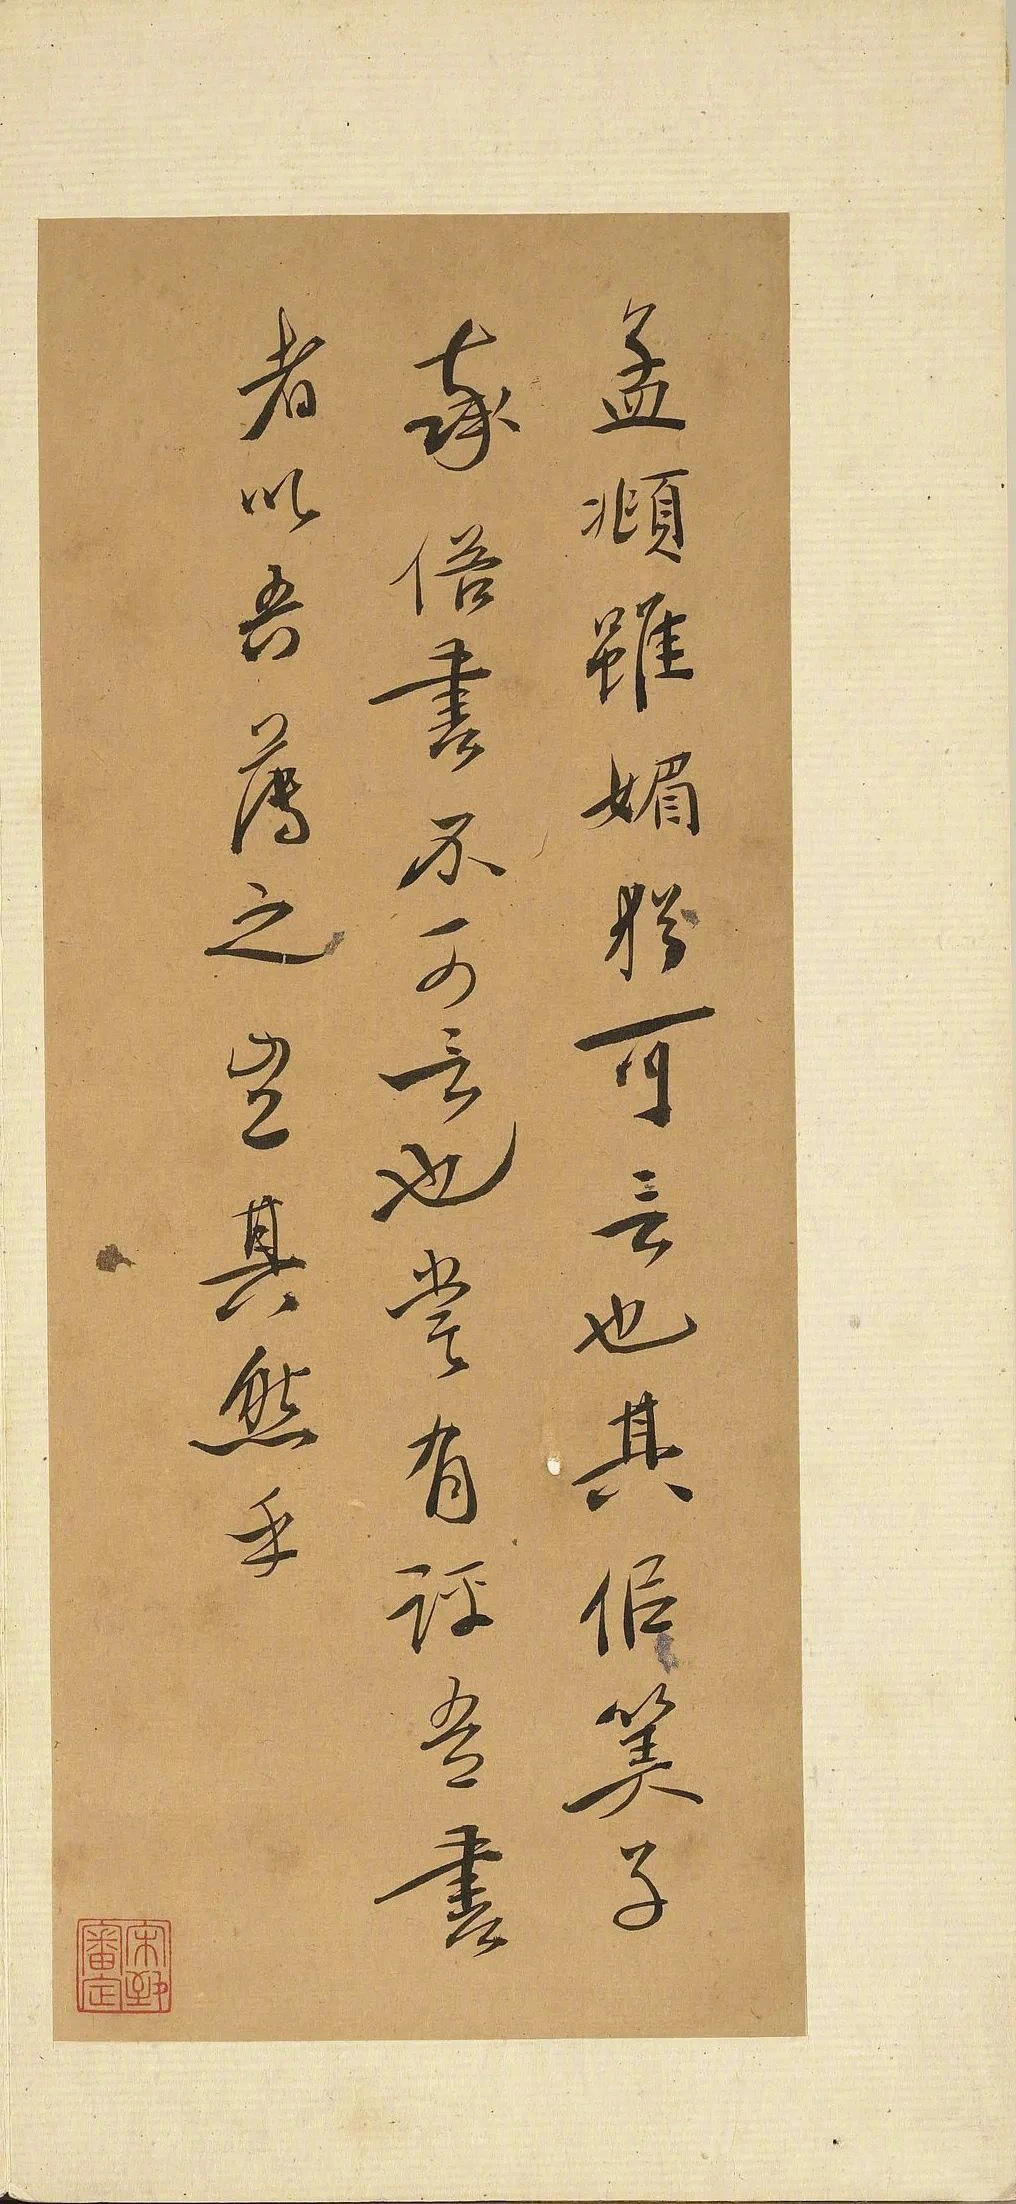 孟頫雖媚猶可言也其佀筭子
率俗書不可言也嘗有評吾書
者以吾薄之豈其然乎
宋致審定